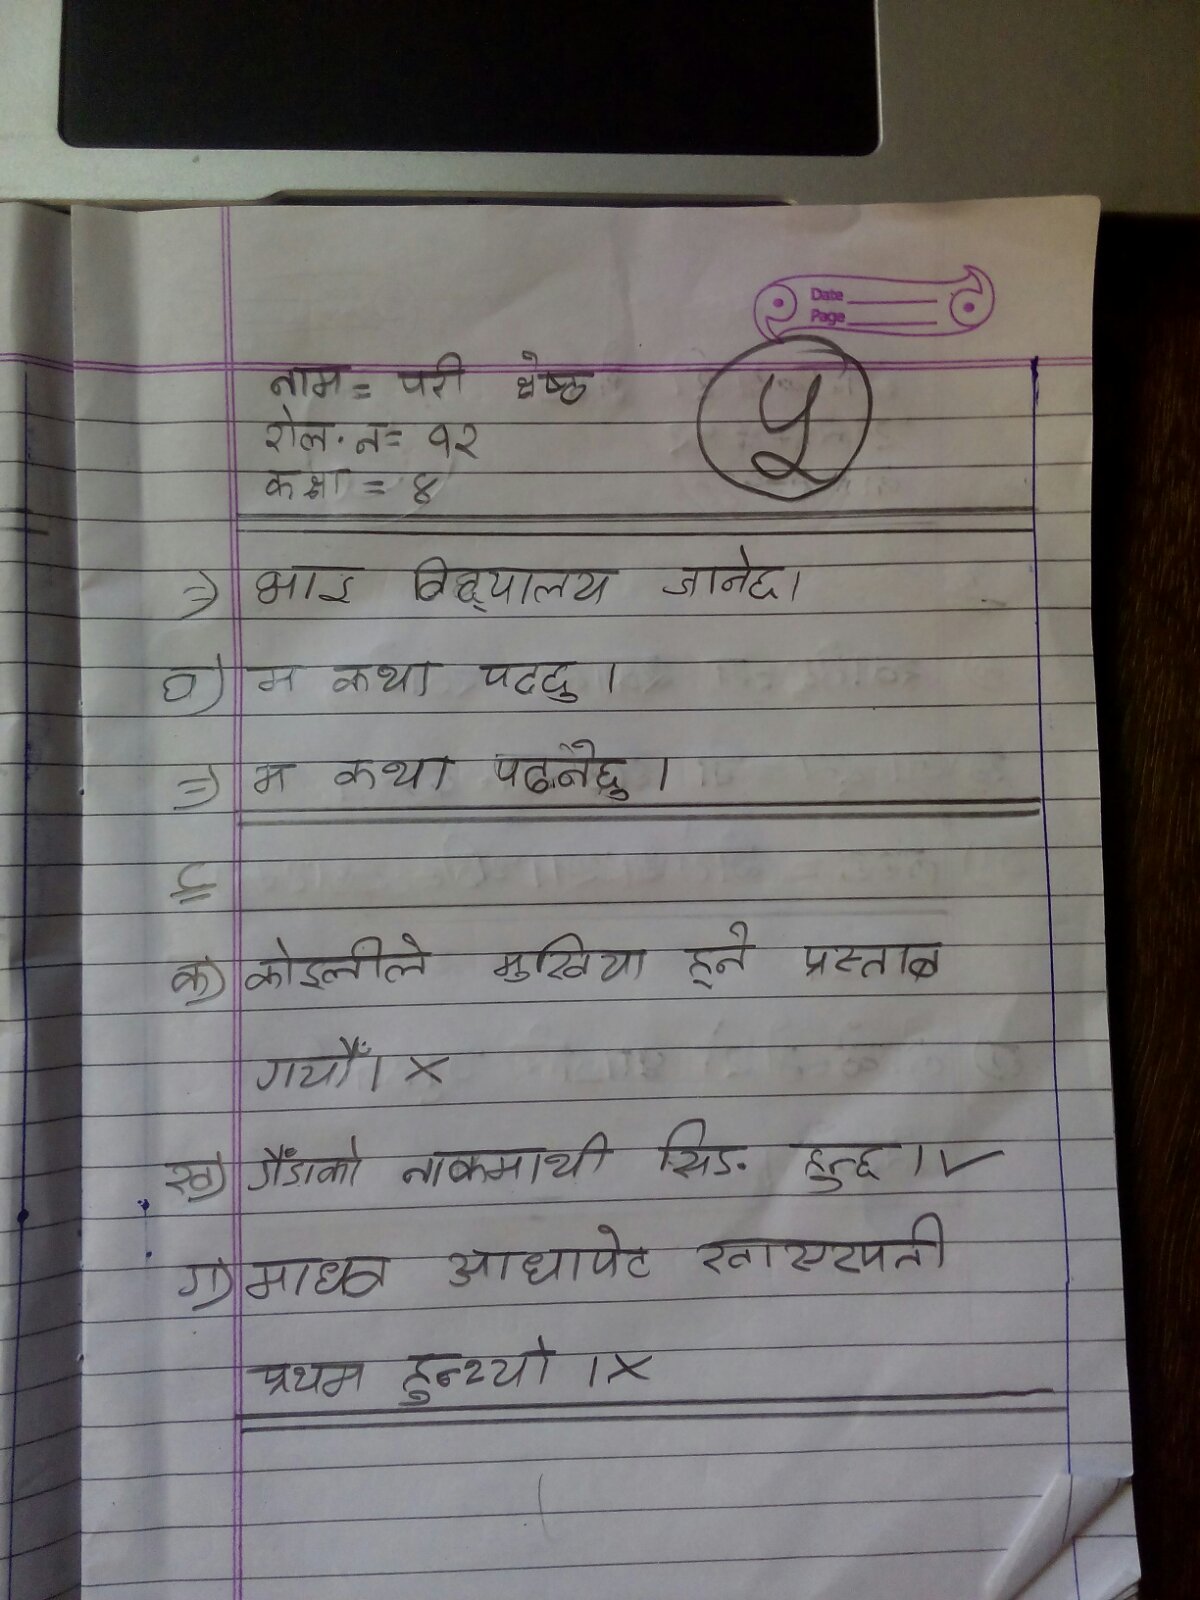 Date
Page
नाम = परी श्रेष्ठ
५
रोल. न = १२
कक्षा = ४
⇒) भाइ विद्द्यालय जानेछ।
घ) म कथा पढ्छु ।
⇒) म कथा पढ्नेछु ।
८
क) कोइलीले मुखिया हुने प्रस्ताब
गर्यौं। ×
ख) गैंडाको नाकमाथी सिङ. हुन्छ । ✓
ग) माधव आधापेट खाएरपनी
प्रथम हुन्थ्यो । ×